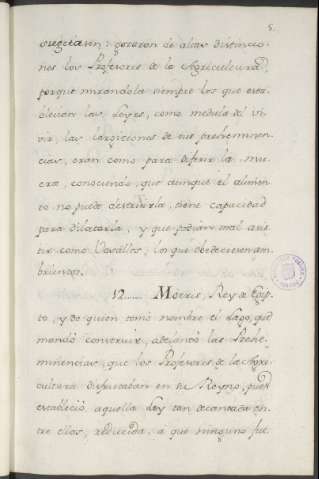 5.
vegetavan: gozaron de altas distincio-
nes los Profesores de la Agricultura,
porque mirandola siempre los que esta-
blecian las Leyes, como medula del vi-
vir, las de sus preheminen-
cias, eran como para diferir la mu-
erte, conociendo, que aunque el alimen-
to no puede destruirla, tiene capacidad
para dilatarla, y que podian mal asis-
tir como Vasallos, los que obedeciesen am-
brientos.
12...... Moeris, Rey de Egip-
to, y de quien tomó nombre el Lago, que
mandó construir, adelantó las Prehe-
minencias, que los Profesores de la Agri-
cultura disfrutaban en su Reyno, pues
estableció aquella Ley tan decantada en-
tre ellos, reducida a que ninguno fue